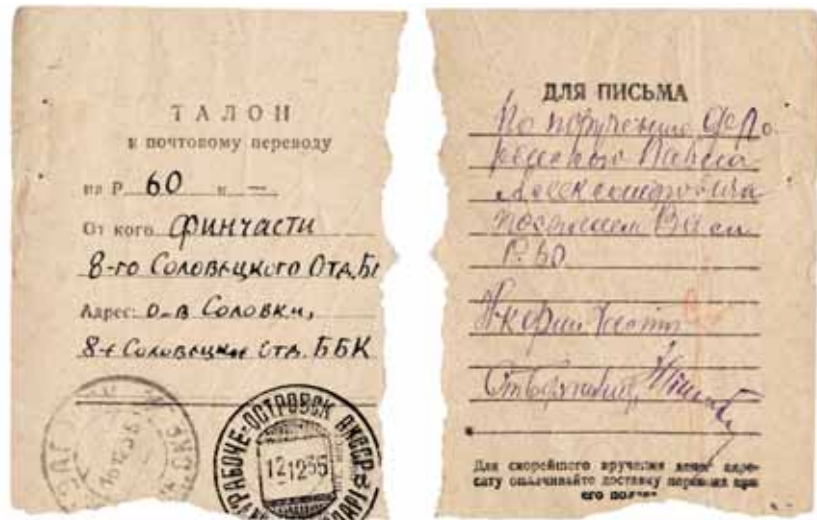 ТАЛОН
к почтовому переводу
на Р. 60 к —
От кого Финчасти
8-го Соловецкого Отд. ББ
Адрес: о-в Соловки,
8-е Соловецкое отд. ББК
РАБОЧЕ-ОСТРОВСК АКССР
12 12 35
ДЛЯ ПИСЬМА
По поручению Фло
ренского Павла
Александровича
посылаем Вам
Р. 60
Для скорейшего вручения денег адре-
сату оплачивайте доставку перевода при
его подаче